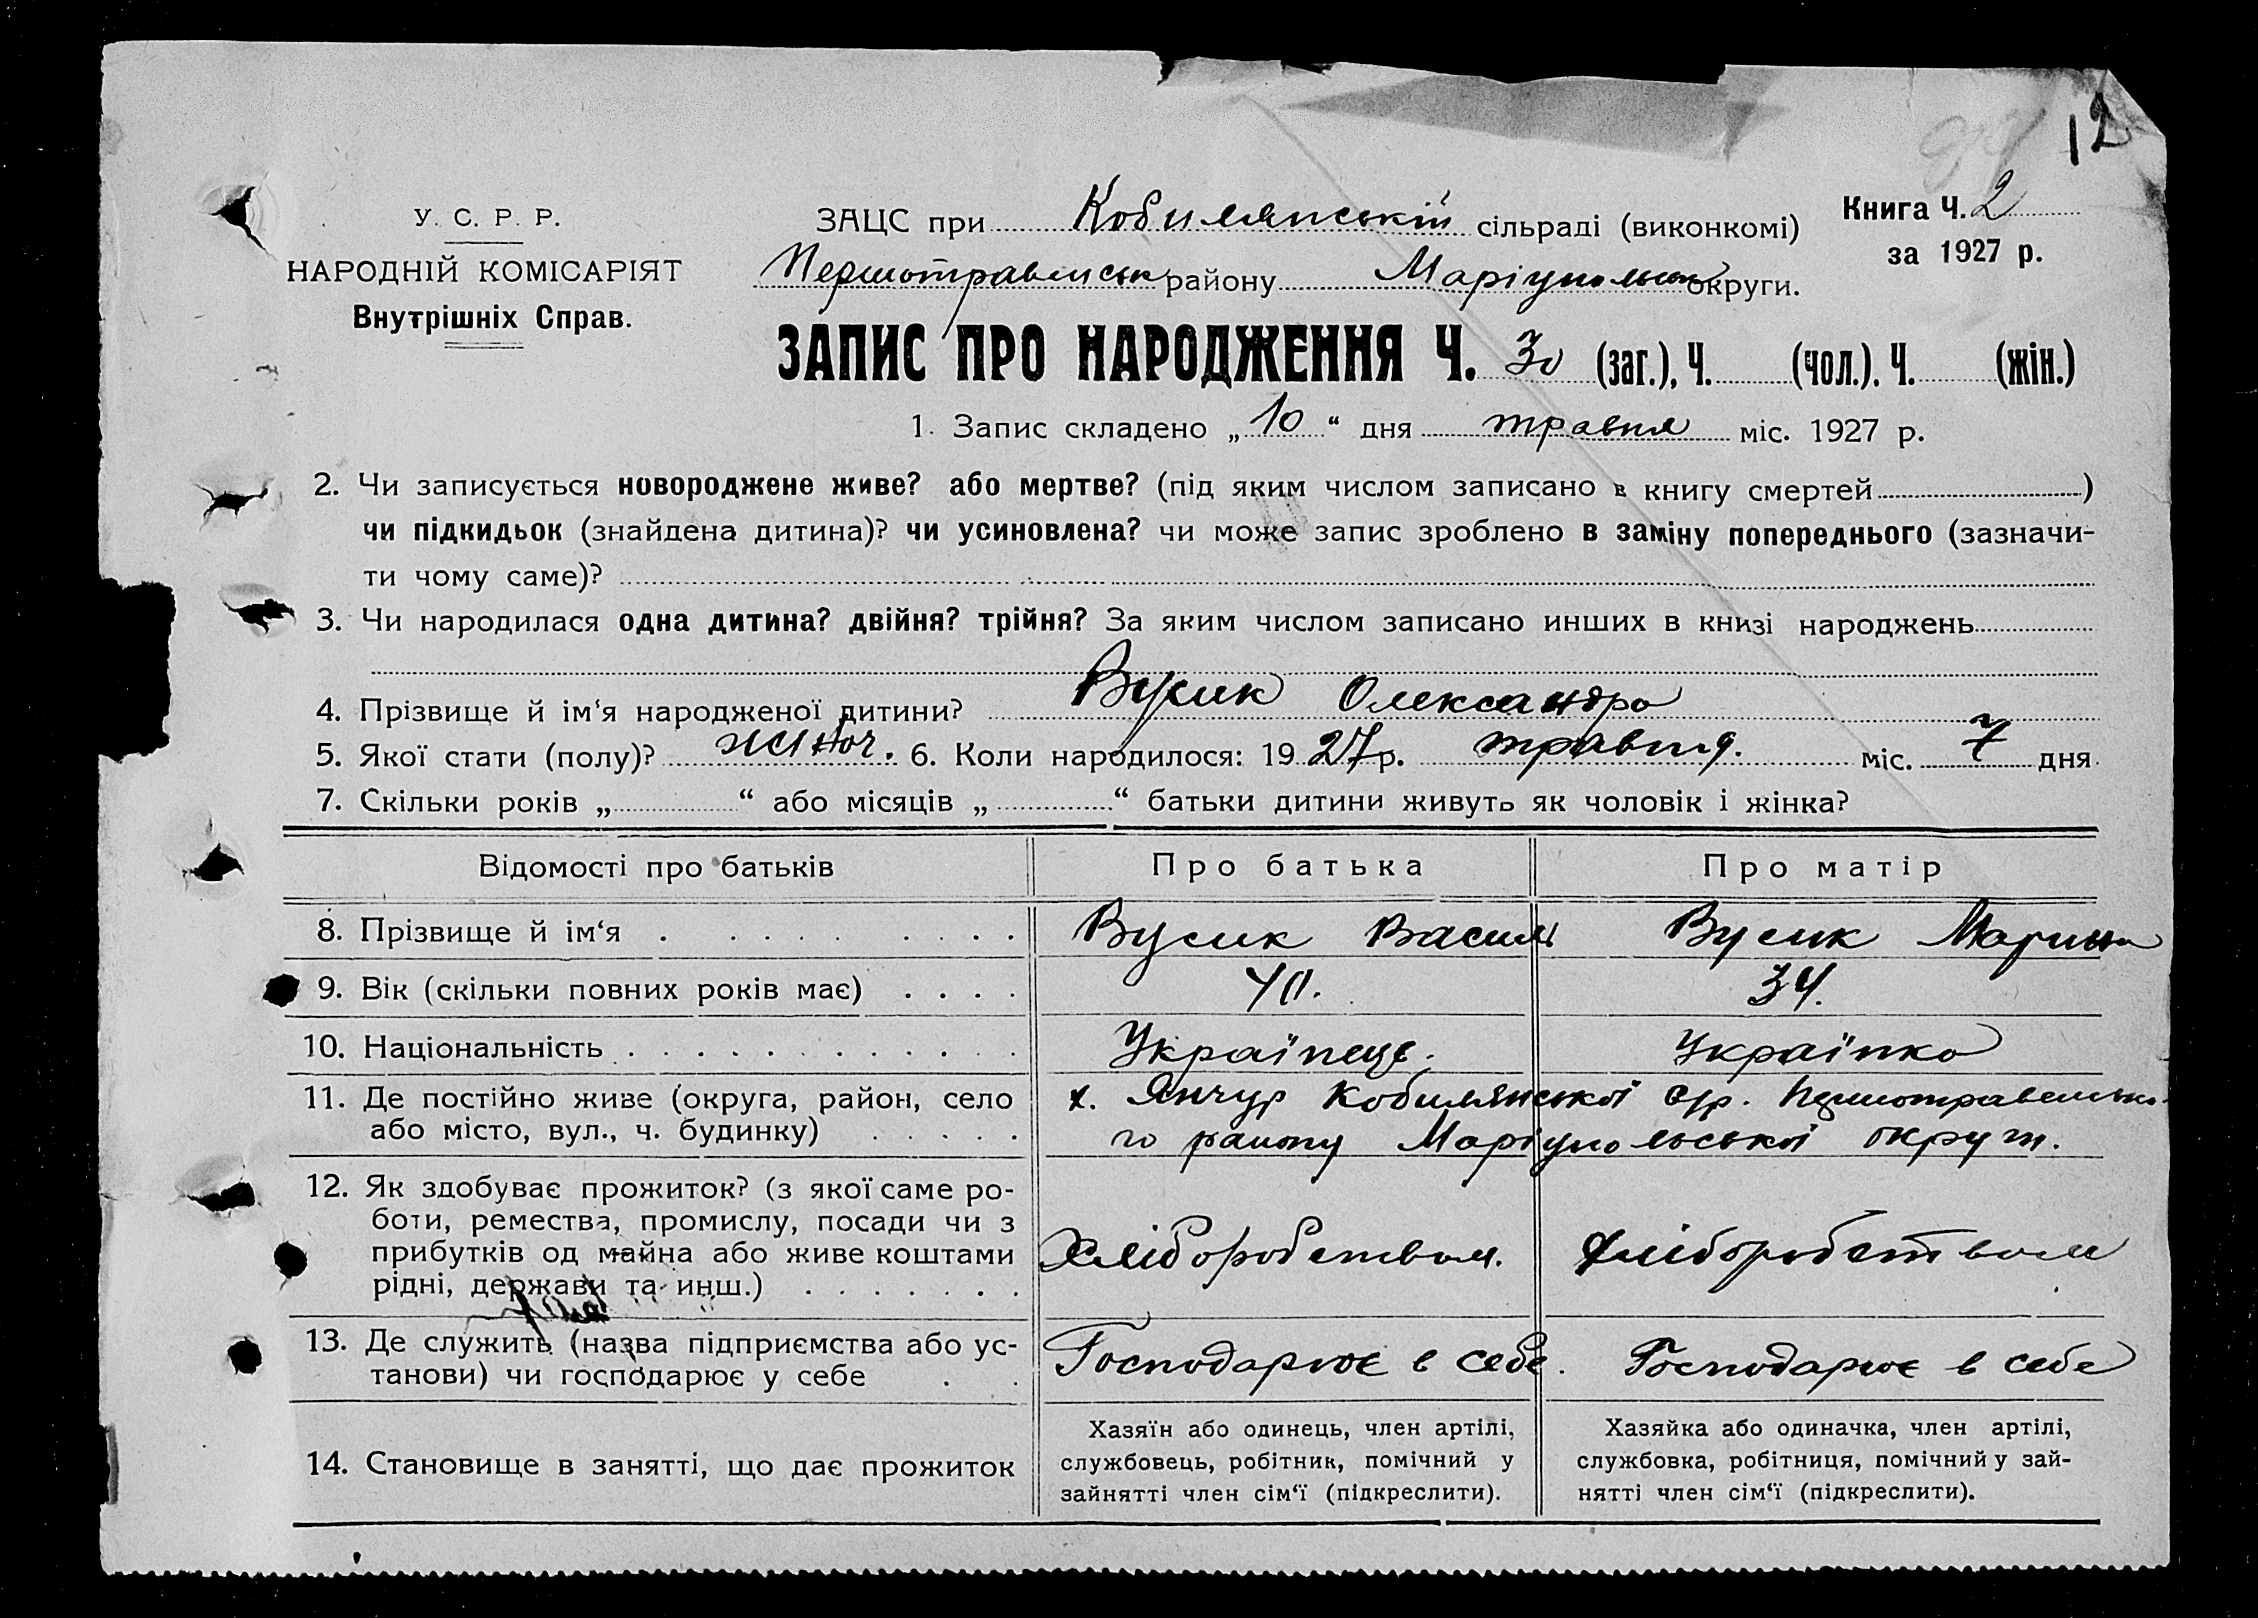 12
У. С. Р. Р.
НАРОДНІЙ КОМІСАРІЯТ
Внутрішніх Справ.
ЗАЦС при Кобилянській сільраді (виконкомі)
Книга Ч. 2
за 1927 р.
Першотравенськ району Маріупольськ округи.
ЗАПИС ПРО НАРОДЖЕННЯ Ч. 30 (заг.), Ч. (чол.). Ч. (жін.)
1. Запис складено „10“ дня травня міс. 1927 р.
2. Чи записується новороджене живе? або мертве? (під яким числом записано в книгу смертей )
чи підкидьок (знайдена дитина)? чи усиновлена? чи може запис зроблено в заміну попереднього (зазначи-
ти чому саме)?
3. Чи народилася одна дитина? двійня? трійня? За яким числом записано инших в книзі народжень
4. Прізвище й ім‘я народженої дитини? Вусик Олександра
5. Якої стати (полу)? жіноч. 6. Коли народилося: 1927 р. травня. міс. 7 дня
7. Скільки років „ “ або місяців „ “ батьки дитини живуть як чоловік і жінка?
Відомості про батьків Про батька Про матір
8. Прізвище й ім‘я . . . . . . . . . Вусик Василь Вусик Марина
9. Вік (скільки повних років має) . . . . 40. 34.
10. Національність . . . . . . . . . . . . Українець. Українка
11. Де постійно живе (округа, район, село х. Янчур Кобилянської с/р. Першотравенсько-
або місто, вул., ч. будинку) . . . . . го району Маріупольської округи.
12. Як здобуває прожиток? (з якої саме ро-
боти, ремества, промислу, посади чи з
прибутків од майна або живе коштами Хліборобством. Хліборобством
рідні, держави та инш.) . . . . . . .
13. Де служить (назва підприємства або ус- Господарює в себе. Господарює в себе
танови) чи господарює у себе . .
14. Становище в занятті, що дає прожиток
Хазяїн або одинець, член артілі,
службовець, робітник, помічний у
зайнятті член сім‘ї (підкреслити).
Хазяйка або одиначка, член артілі,
службовка, робітниця, помічний у зай-
нятті член сім‘ї (підкреслити).